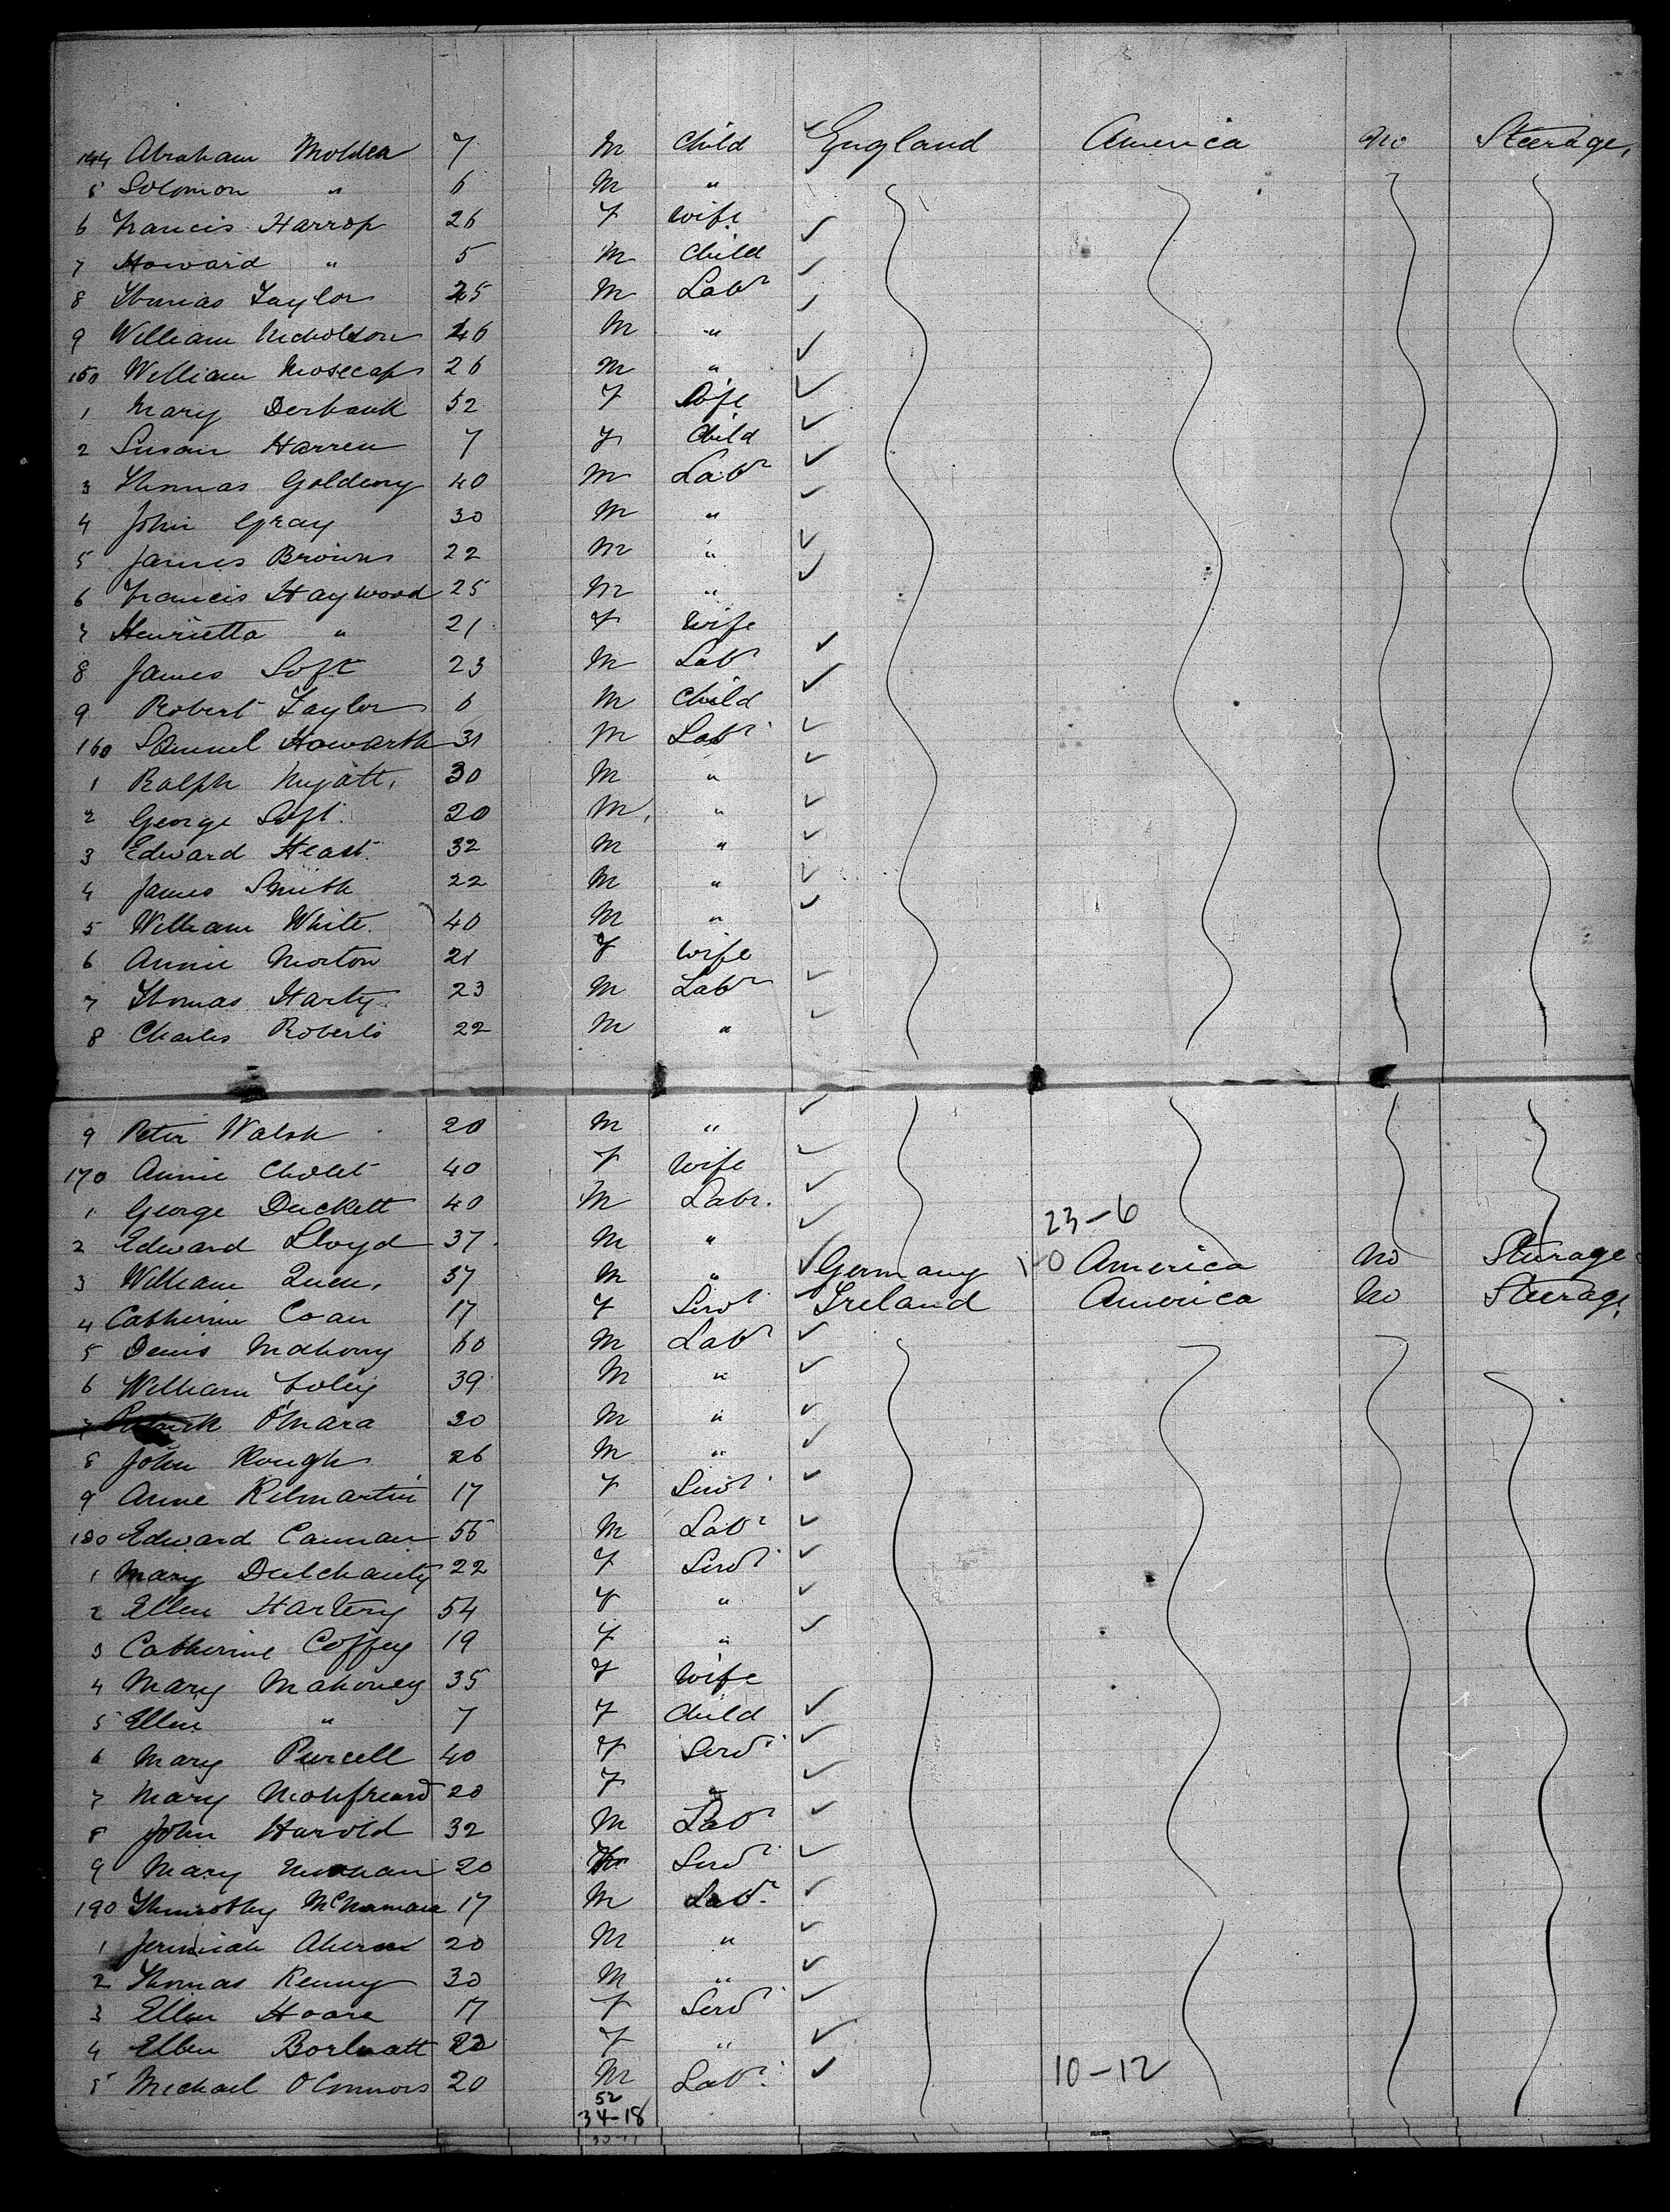 144 Abraham Molden 7 M Child England America No Steerage,
5 Solomon " 6 M "
6 Francis Harrop 26 F Wife
7 Howard " 5 M Child
8 Thomas Taylor 25 M Labr
9 William Nicholson 26 M "
150 William Mosecap 26 M "
1 Mary Derbank 52 F Wife
2 Susan Harren 7 F Child
3 Thomas Goldeny 40 M Labr
4 John Gray 30 M "
5 James Browns 22 M "
6 Francis Haywood 25 M "
7 Henrietta " 21 F Wife
8 James Soft 23 M Labr
9 Robert Taylor 6 M Child
160 Samuel Howarth 31 M Labr
1 Ralph Myatt, 30 M "
2 George Soft. 20 M "
3 Edward Heast. 32 M "
4 James Smith 22 M "
5 William White. 40 M "
6 Annie Morton 21 F Wife
7 Thomas Harty. 23 M Labr
8 Charles Roberts 22 M "
9 Peter Walsh 20 M "
170 Annie Cholet 40 F Wife
1 George Duckett 40 M Labr.
23-6
2 Edward Lloyd 37 M "
3 William Quen, 37 M " Germany 1-0 America No Steerage
4 Catherine Coan 17 F Servt Ireland America No Steerage
5 Denis Mahony 60 M Labr
6 William Foley 39 M "
7 Patrick O'Mara 30 M "
8 John Rough 26 M "
9 Anne Kilmartin 17 F Servt
180 Edward Cannan 55 M Labr
1 Mary Dulchanty 22 F Servt
2 Ellen Hartery 54 F "
3 Catherine Coffey 19 F "
4 Mary Mahoney 35 F Wife
5 Ellen " 7 F Child
6 Mary Purcell 40 F Servt
7 Mary 20 F "
8 John Harold 32 M Labr
9 Mary 20 Servt
190 Thimothy McNamara 17 M Labr
1 Jerimiah Aheron 20 M "
2 Thomas Kenny 30 M "
3 Ellen Hoare 17 F Servt
4 Ellen 22 F "
5 Michael O'Connors 20 M Labr 10-12
52
34-18